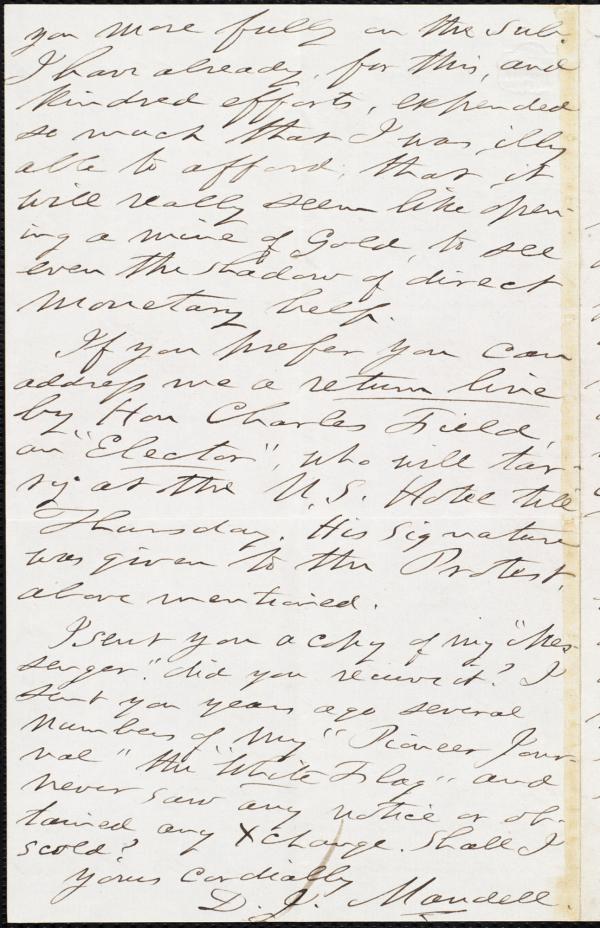 you more fully on the sub.
I have already, for this, and
kindred efforts, expended
so much that I was illy
able to afford, that it
will really seem like open-
ing a mine of Gold, to see
even the shadow of direct
monetary help.
If you prefer you can
address me a return line
by Hon Charles Field,
an "Elector", who will tar-
ry at the U.S. Hotel till
Thursday. His signature
was given to the Protest,
above mentioned.
I sent you a copy of my "Mes-
senger." did you receive it? I
sent you years ago several
numbers of my "Pioneer Jour-
nal" the "White Flag" and
never saw any notice or ob-
tained any Xchange. Shall I
scold?
yours cordially
D. J. Mandell.